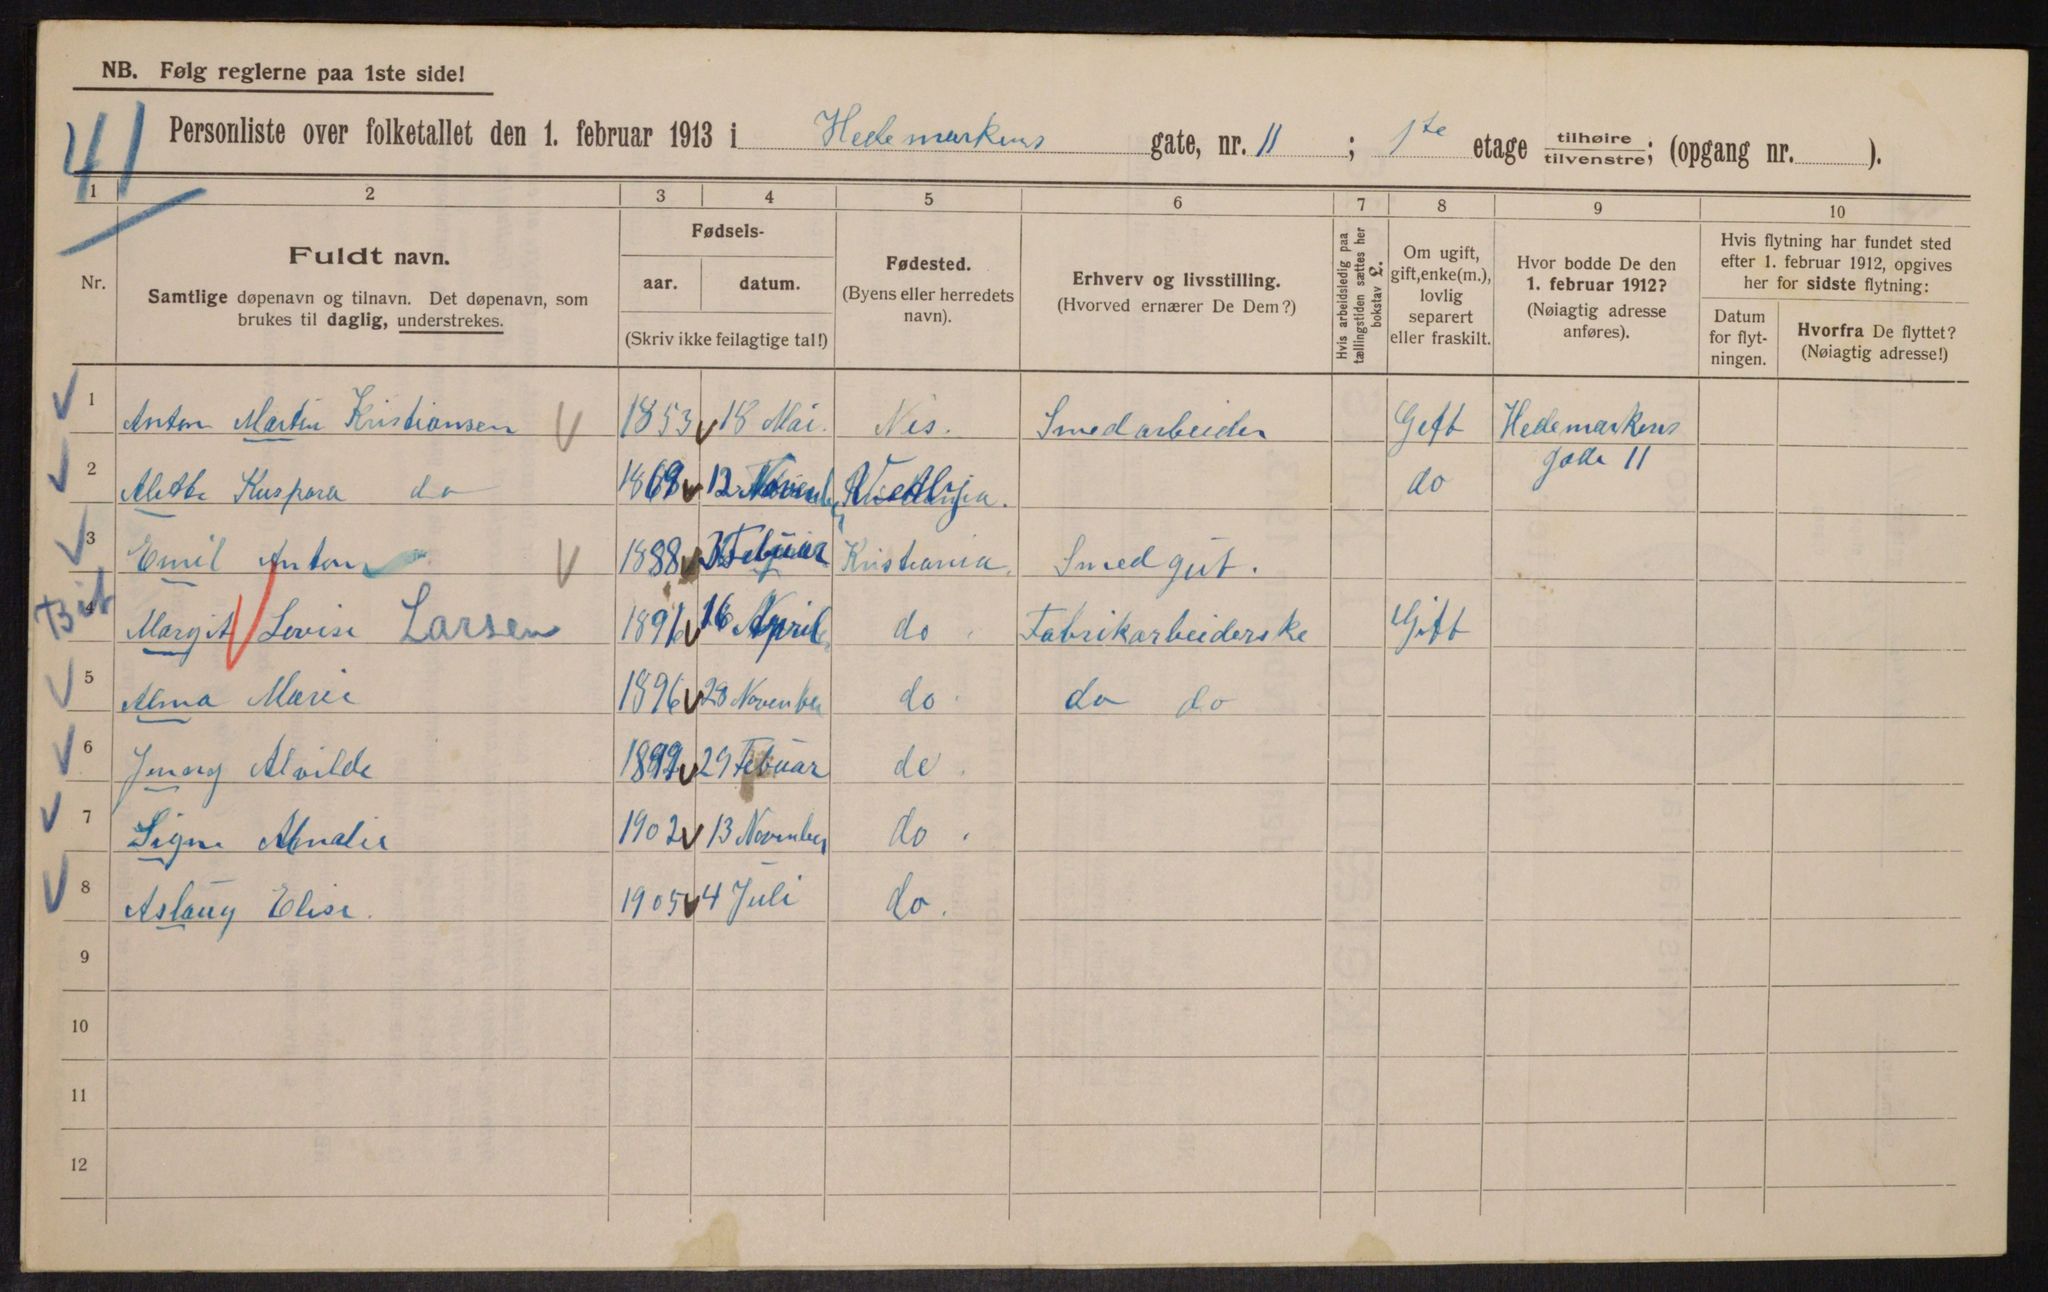 NB. Følg reglerne paa 1ste side!
41
Personliste over folketallet den 1. februar 1913 i Hedemarkens gate, nr. 11 ; 1ste etage tilhøire tilvenstre; (opgang nr. ).
1 2 3 4 5 6 7 8 9 10
Nr.
Fuldt navn.
Samtlige døpenavn og tilnavn. Det døpenavn, som
brukes til daglig, understrekes.
Fødsels-
aar. datum.
(Skriv ikke feilagtige tal!)
Fødested.
(Byens eller herredets
navn).
Erhverv og livsstilling.
(Hvorved ernærer De Dem?)
Hvis arbeidsledig paa
tællingstiden sættes her
bokstav L.
Om ugift,
gift, enke(m.),
lovlig
separert
eller fraskilt.
Hvor bodde De den
1. februar 1912?
(Nøiagtig adresse
anføres).
Hvis flytning har fundet sted
efter 1. februar 1912, opgives
her for sidste flytning:
Datum
for flyt-
ningen.
Hvorfra De flyttet?
(Nøiagtig adresse!)
1 Anton Martin Kristiansen 1853 18 Mai. Nes. Smedarbeider Gift Hedemarkens
gade 11
2 Kaspara do 1869 12 do
3 Emil Anton 1888 3 Febuar Kristiania. Smedgut.
4 Margit Lovise Larsen 1891 16 April do. Fabrikarbeiderske Gift
5 Alma Marie 1896 28 November do. do do
6 Alvilde 1892 29 Febuar do.
7 Signe Amalie 1902 13 November do.
8 Aslaug Elise. 1905 4 Juli do.
9
10
11
12